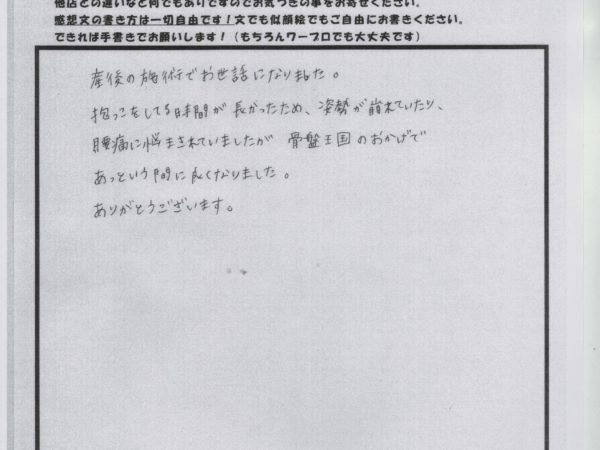 他店との違いなど何でもありですのでお気づきの事をお寄せください。
感想文の書き方は一切自由です！文でも似顔絵でもご自由にお書きください。
できれば手書きでお願いします！（もちろんワープロでも大丈夫です）
産後の施術でお世話になりました。
抱っこをしてる時間が長かったため、姿勢が崩れていたり、
腰痛に悩まされていましたが 骨盤王国のおかげで
あっという間に良くなりました。
ありがとうございます。